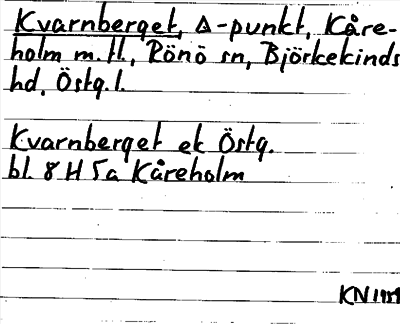 Kvarnberget, △-punkt, Kåre-
holm m.fl., Rönö sn, Björkekinds
hd, Östg.l.
Kvarnberget ek Östg.
bl. 8 H 5a Kåreholm
KN